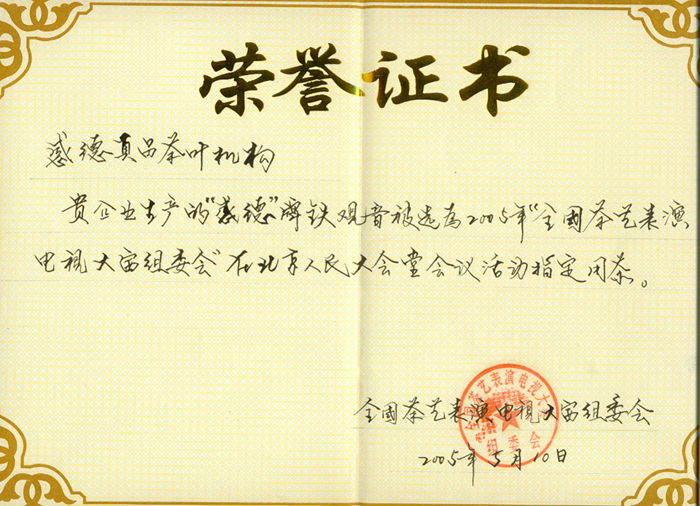 荣誉证书
感德真品茶叶机构
贵企业生产的"感德"牌铁观音被选为2005年"全国茶艺表演
电视大宙组委会"在北京人民大会堂会议活动指定用茶。
全国茶艺表演电视大
组委会
全国茶艺表演电视大宙组委会
2005年5月10日